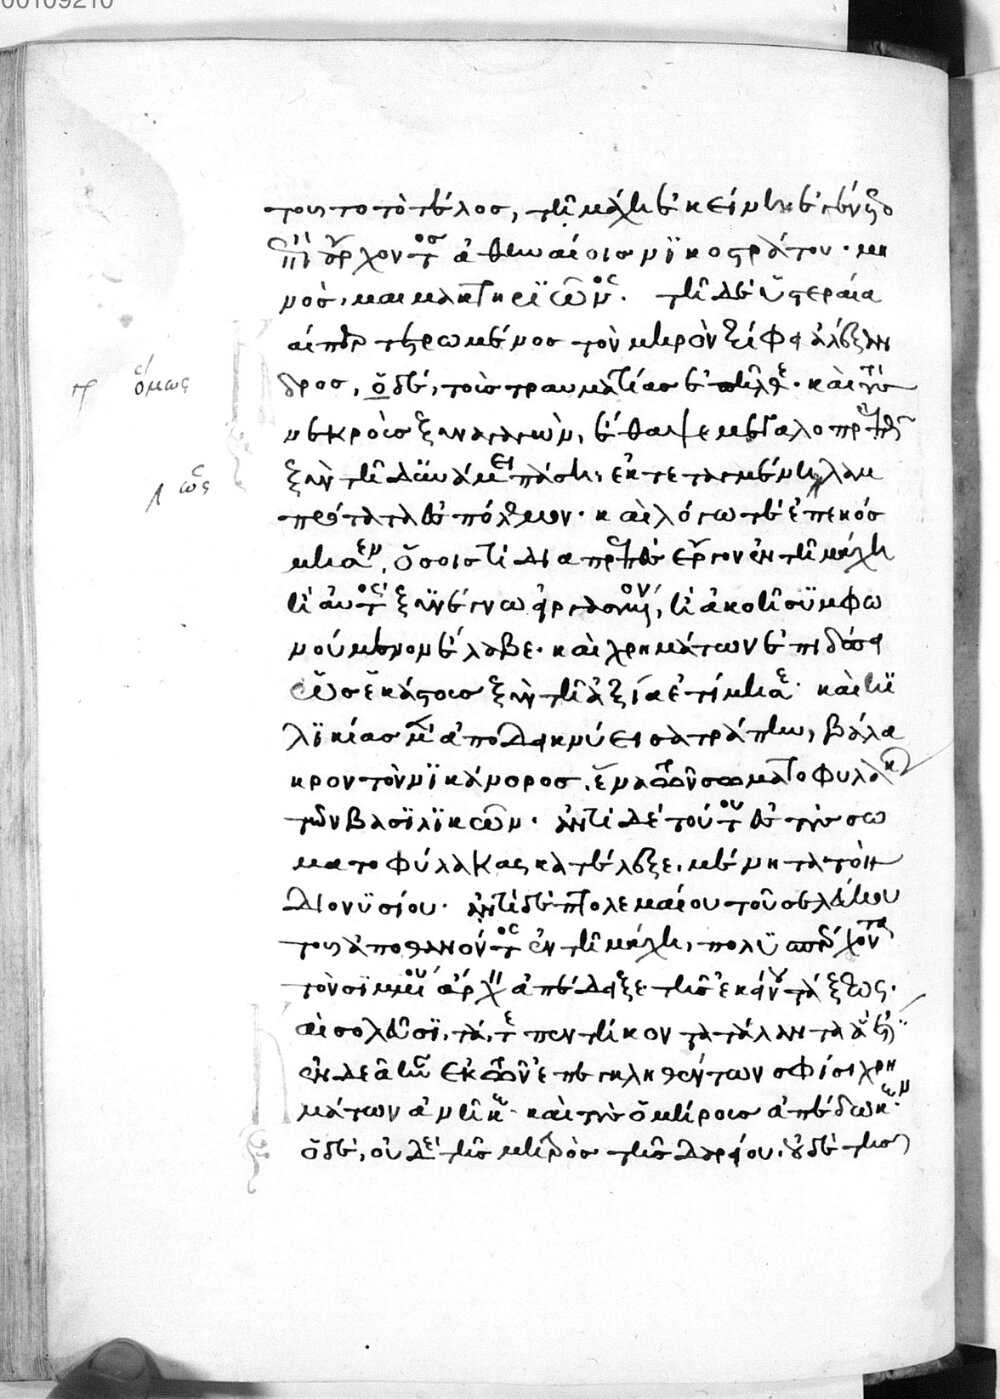 τοῦτο τὸ τέλος, τῆ μάχη ἐκείνη ἐγένετο
ἐπὶ ἄρχοντος ἀθηναίοισ νϊκοστράτου· μη
νὸσ, μαιμακτηρϊῶνος. τῆ δὲ ὑστεραία
αίπερ τετρωμένοσ τὸν μηρὸν ξίφει ἀλέξαν
δροσ, ὁ δὲ, τοὺσ τραυματίασ ἐπῆλθε· καὶ τοὺσ
νεκροὺσ ξυναγαγὼν, ἔθαψε μεγαλοπρεπῶς
ξὺν τῆ δϋνάμει πάση, ἐκτεταγμένη λαμ
πρότατα ἐσ πόλεμον· καὶ λόγω τὲ ἐπεκόσ
μησεν, ὅσοισ τὶ διαπρεπὲσ ἔργον ἐν τῆ μάχη
ἢ αὐτὸς ξυνέγνω εἰργασμένον, ἢ ἀκοῆ σϋμφω
νούμενον ἔλαβε· καὶ χρημάτων ἐπιδόσει
ὡσ ἑκάστοισ ξὺν τῆ ἀξία ἐτίμησε· καὶ κϊ
λϊκίασ μὲν ἀποδεικνύει σατράπην, βάλα
κρον τὸν νϊκάνοροσ, ἕνα τῶν σωματοφυλάκων
τῶν βασϊλϊκῶν· ἀντὶ δὲ τούτου ἐσ τοὺσ σω
ματοφύλακας κατέλεξε, μένητα τὸν
Διονϋσίου· ἀντὶ δὲ πτολεμαίου τοῦ σελεύκου
τοῦ ἀποθανόντος ἐν τῆ μάχη, πολϋσπέρχοντα
τὸν σϊμμίου ἄρχειν ἀπέδειξε τῆσ ἐκείνου τάξεως·
αὶ σολεῦσϊ, τά, τε πεντήκοντα τάλαντα ἃ ἔτϊ
ἐνδεᾶ ἦν ἐκ τῶν ἐπικληθέντων σφίσι χρη
μάτων ἀνῆκε· καὶ τοὺσ ὁμήρουσ ἀπέδωκεν·
ὁ δὲ, οὐδὲ τῆσ μητρὸσ τῆσ Δαρείου, οὐδὲ τῆσ
ὅμως
ὡς